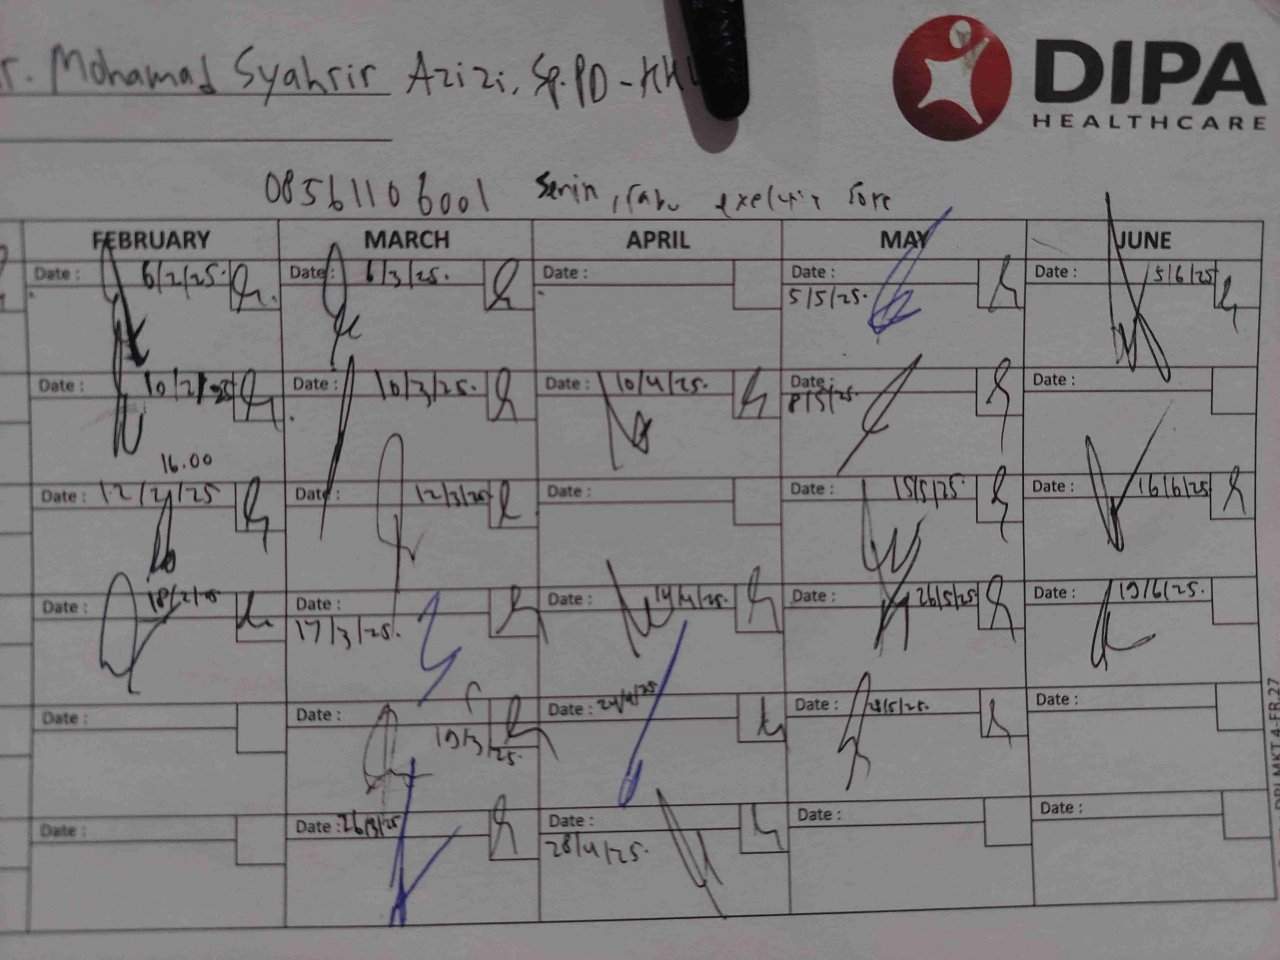 r. Mohamad Syahrir Azizi, Sp.PD-KH
DIPA
HEALTHCARE
08561106001 Senin, rabu exekutif sore
FEBRUARY MARCH APRIL MAY JUNE
Date : 6/2/25. Date : 6/3/25. Date : Date : 5/5/25. Date : 5/6/25
Date : 10/2/25 Date : 10/3/25. Date : 10/4/25. Date : 8/5/25. Date :
16.00
Date : 12/2/25 Date : 12/3/25 Date : Date : 15/5/25. Date : 16/6/25
Date : 18/2/25 Date : 17/3/25. Date : 14/4/25. Date : 26/5/25 Date : 19/6/25.
Date : Date : 19/3/25. Date : 24/4/25 Date : Date :
Date : Date : 26/3/25 Date : 28/4/25. Date : Date :
MKT 4-FR.27